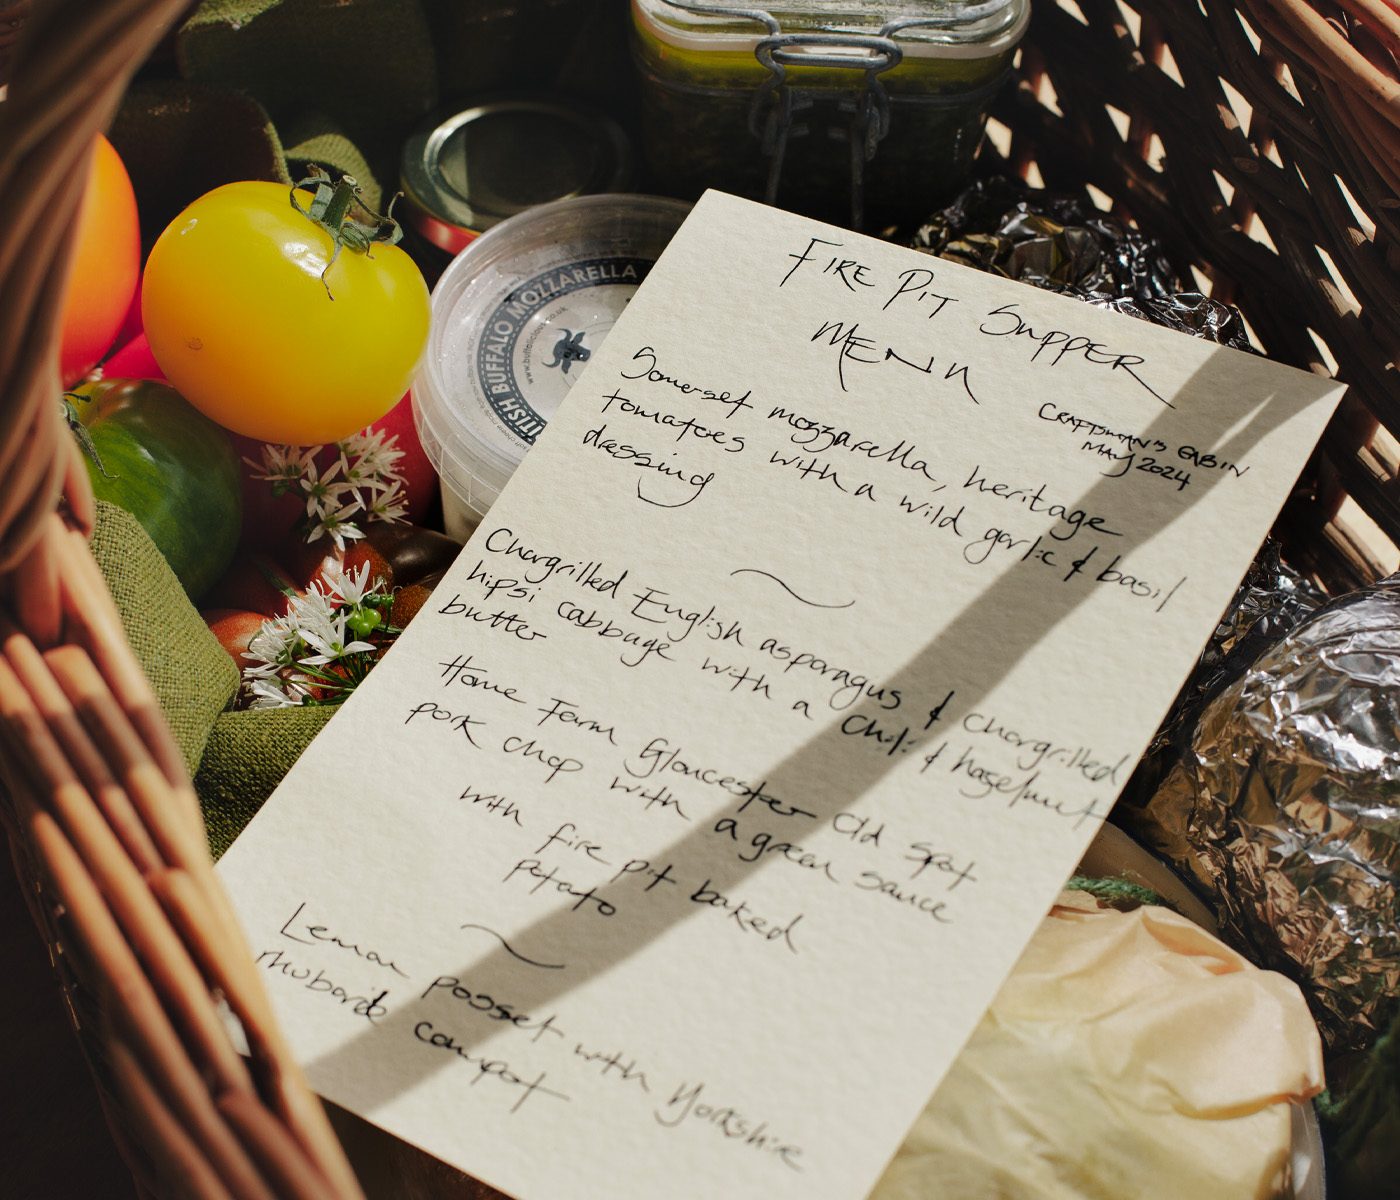 BUFFALO MOZZARELLA
FIRE PIT SUPPER
MENU
CRAFTSMAN'S CABIN
MAY 2024
Somerset mozzarella, heritage
tomatoes with a wild garlic & basil
dressing
Chargrilled English asparagus & chargrilled
hipsi cabbage with a chili & hazelnut
butter
Home Farm Gloucester Old Spot
pork chop with a green sauce
with fire pit baked
potato
Lemon posset with Yorkshire
rhubarb compot